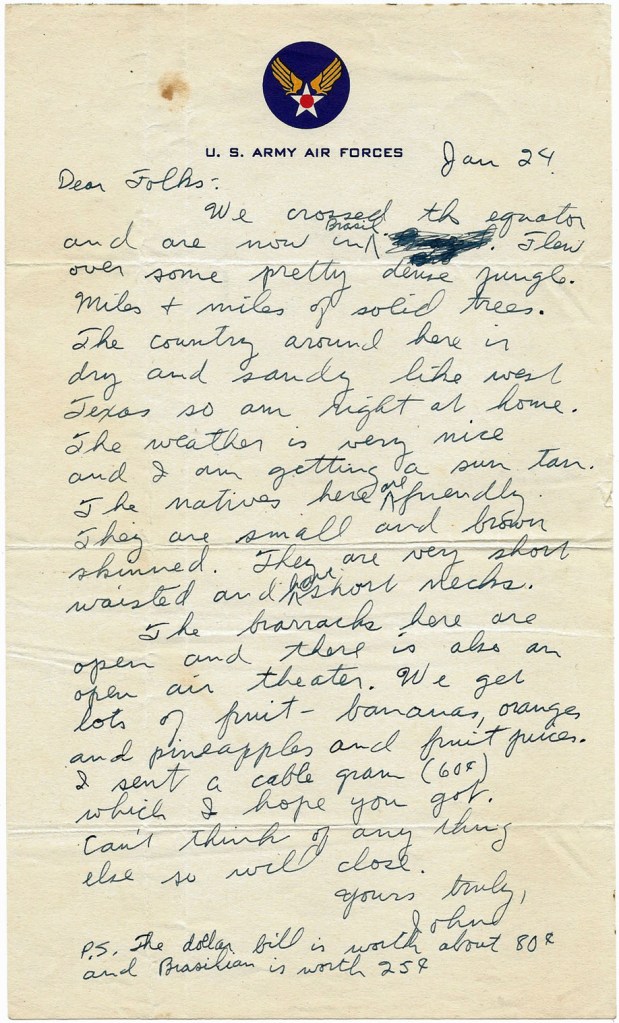 U. S. ARMY AIR FORCES
Jan 24
Dear Folks:
We crossed the equator
and are now in Brasil. Flew
over some pretty dense jungle.
Miles + miles of solid trees.
The country around here is
dry and sandy like west
Texas so am right at home.
The weather is very nice
and I am getting a sun tan.
The natives here are friendly.
They are small and brown
skinned. They are very short
waisted and have short necks.
The barracks here are
open and there is also an
open air theater. We get
lots of fruit - bananas, oranges
and pineapples and fruit juices.
I sent a cable gram (60¢)
which I hope you got.
Can't think of any thing
else so will close.
Yours truly,
John
P.S. The dollar bill is worth about 80¢
and Brasilian is worth 25¢